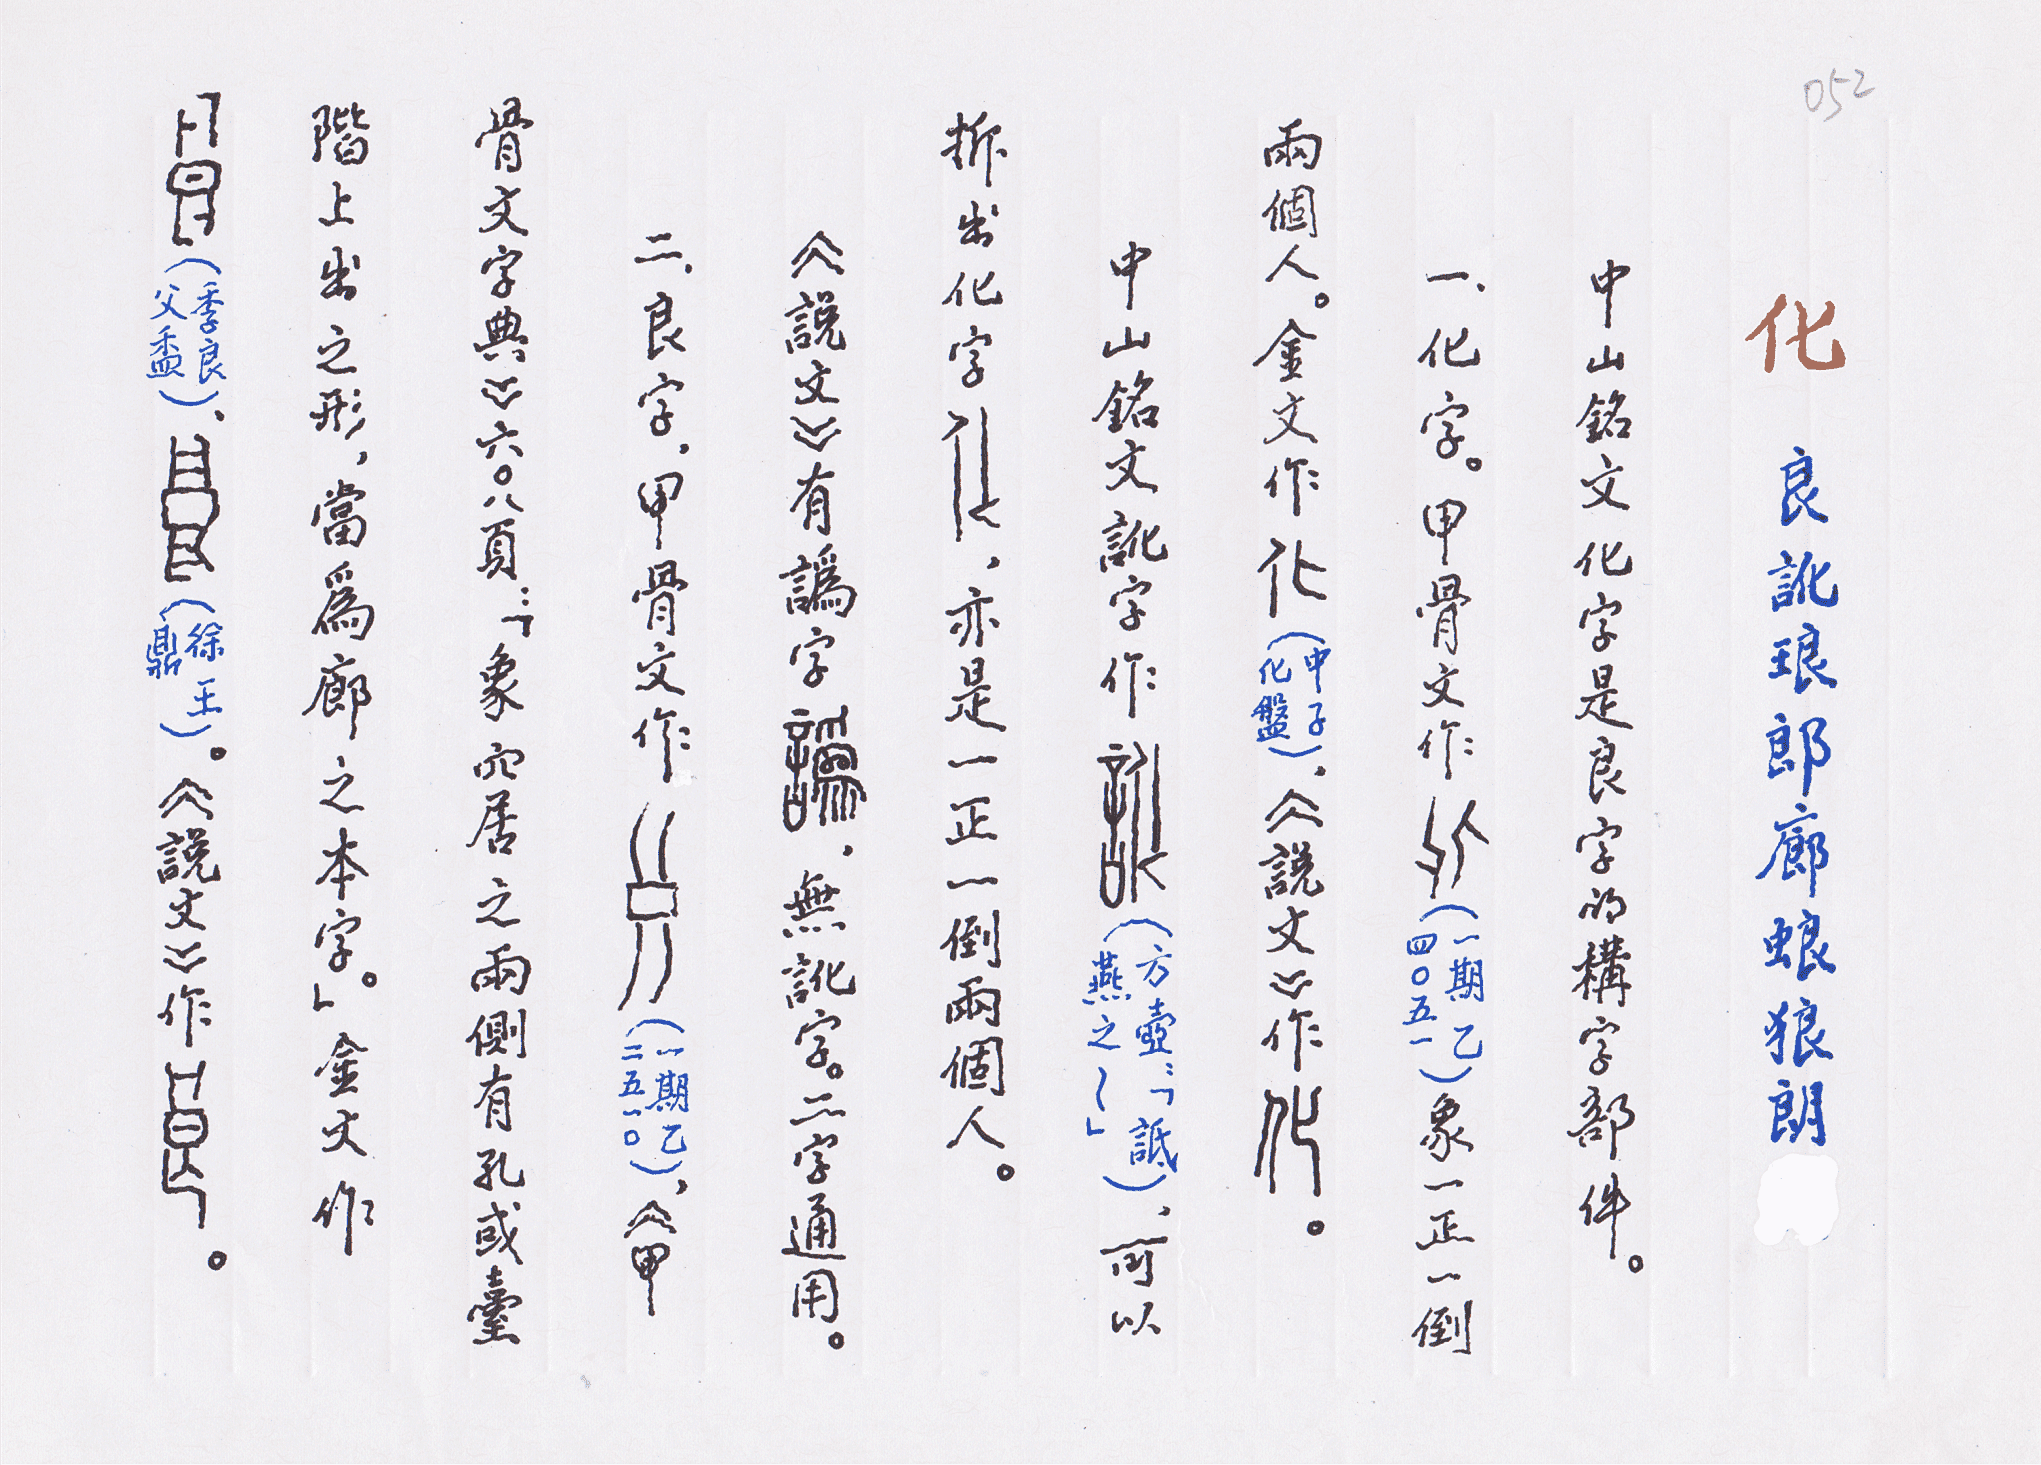 052
化 良訛琅郎廊蜋狼朗
中山銘文化字是良字的構字部件。
一、化字。甲骨文作(一期乙四〇五一)象一正一倒
兩個人。金文作(中子化盤)、《說文》作。
中山銘文訛字作(方壺:「詆燕之~」)，可以
拆出化字，亦是一正一倒兩個人。
《說文》有譌字，無訛字。二字通用。
二、良字，甲骨文作(一期乙二五一〇)，《甲
骨文字典》六〇八頁:「象穴居之兩側有孔或臺
階上出之形，當爲廊之本字。」金文作
(季良父盉)、(徐王鼎)。《說文》作。